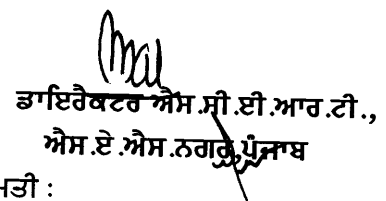 ਡਾਇਰੈਕਟਰ ਐਸ.ਸੀ.ਈ.ਆਰ.ਟੀ.,
ਐਸ.ਏ.ਐਸ.ਨਗਰ,ਪੰਜਾਬ
ਮਤੀ :